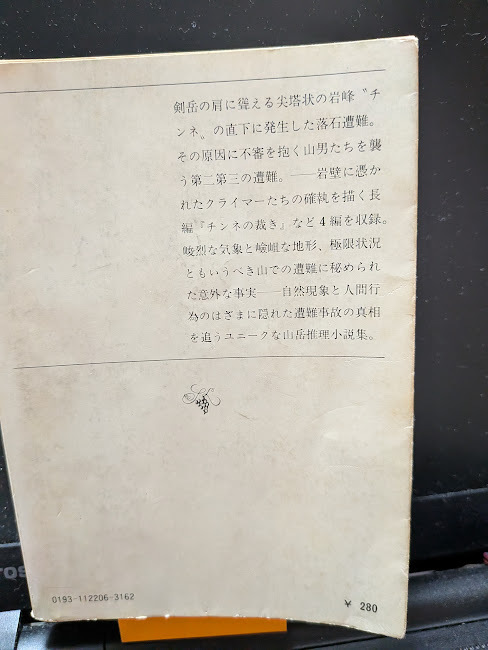 剣岳の肩に聳える尖塔状の岩峰〝チ
ンネ〟の直下に発生した落石遭難。
その原因に不審を抱く山男たちを襲
う第二第三の遭難。――岩壁に憑か
れたクライマーたちの確執を描く長
編『チンネの裁き』など4編を収録。
峻烈な気象と嶮岨な地形、極限状況
ともいうべき山での遭難に秘められ
た意外な事実――自然現象と人間行
為のはざまに隠れた遭難事故の真相
を追うユニークな山岳推理小説集。
0193-112206-3162
¥ 280